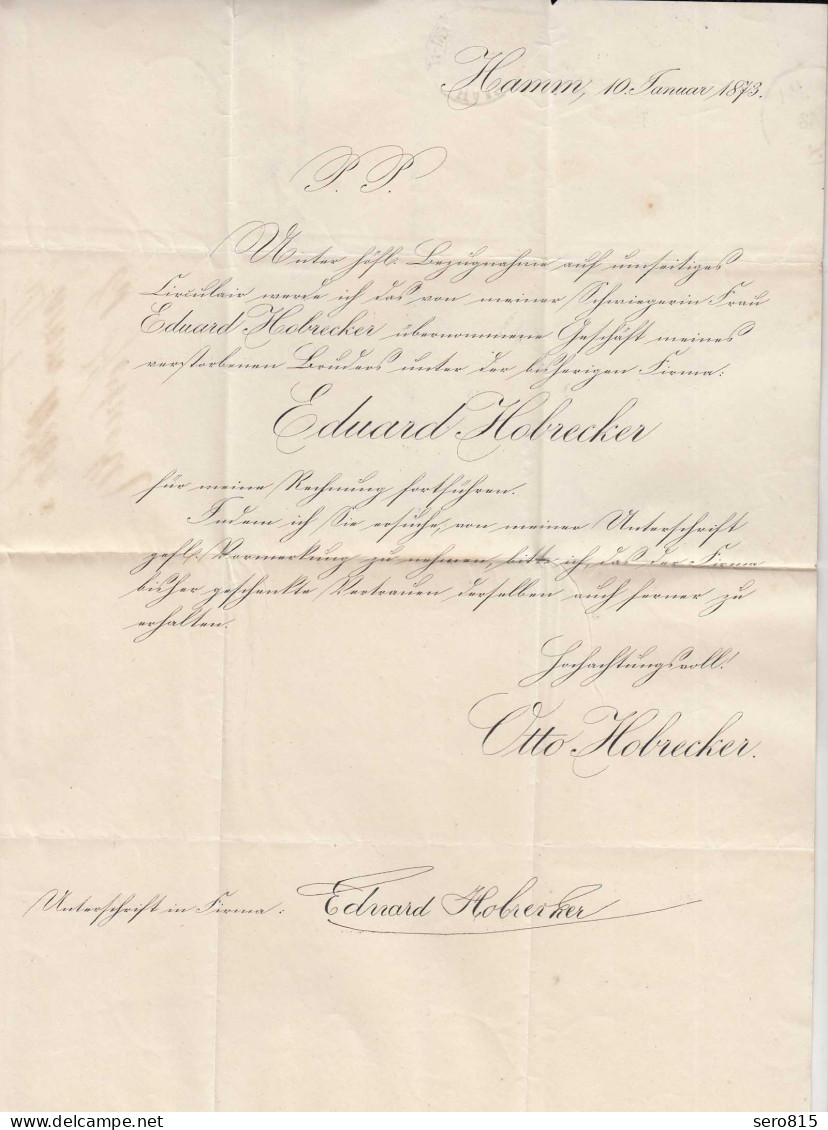 Hamm, 10. Januar 1873.
P. P.
Unter höfl. Bezugnahme auf umseitiges
Circulair werde ich das von meiner Schwiegerin Frau
Eduard Hobrecker übernommene Geschäft meines
verstorbenen Bruders unter der bisherigen Firma:
Eduard Hobrecker
für meine Rechnung fortführen.
Indem ich Sie ersuche, von meiner Unterschrift
gefl. Vormerkung zu nehmen, bitte ich, das der Firma
bisher geschenkte Vertrauen derselben auch ferner zu
erhalten.
Hochachtungsvoll!
Otto Hobrecker.
Unterschrift in Firma: Eduard Hobrecker
sero815